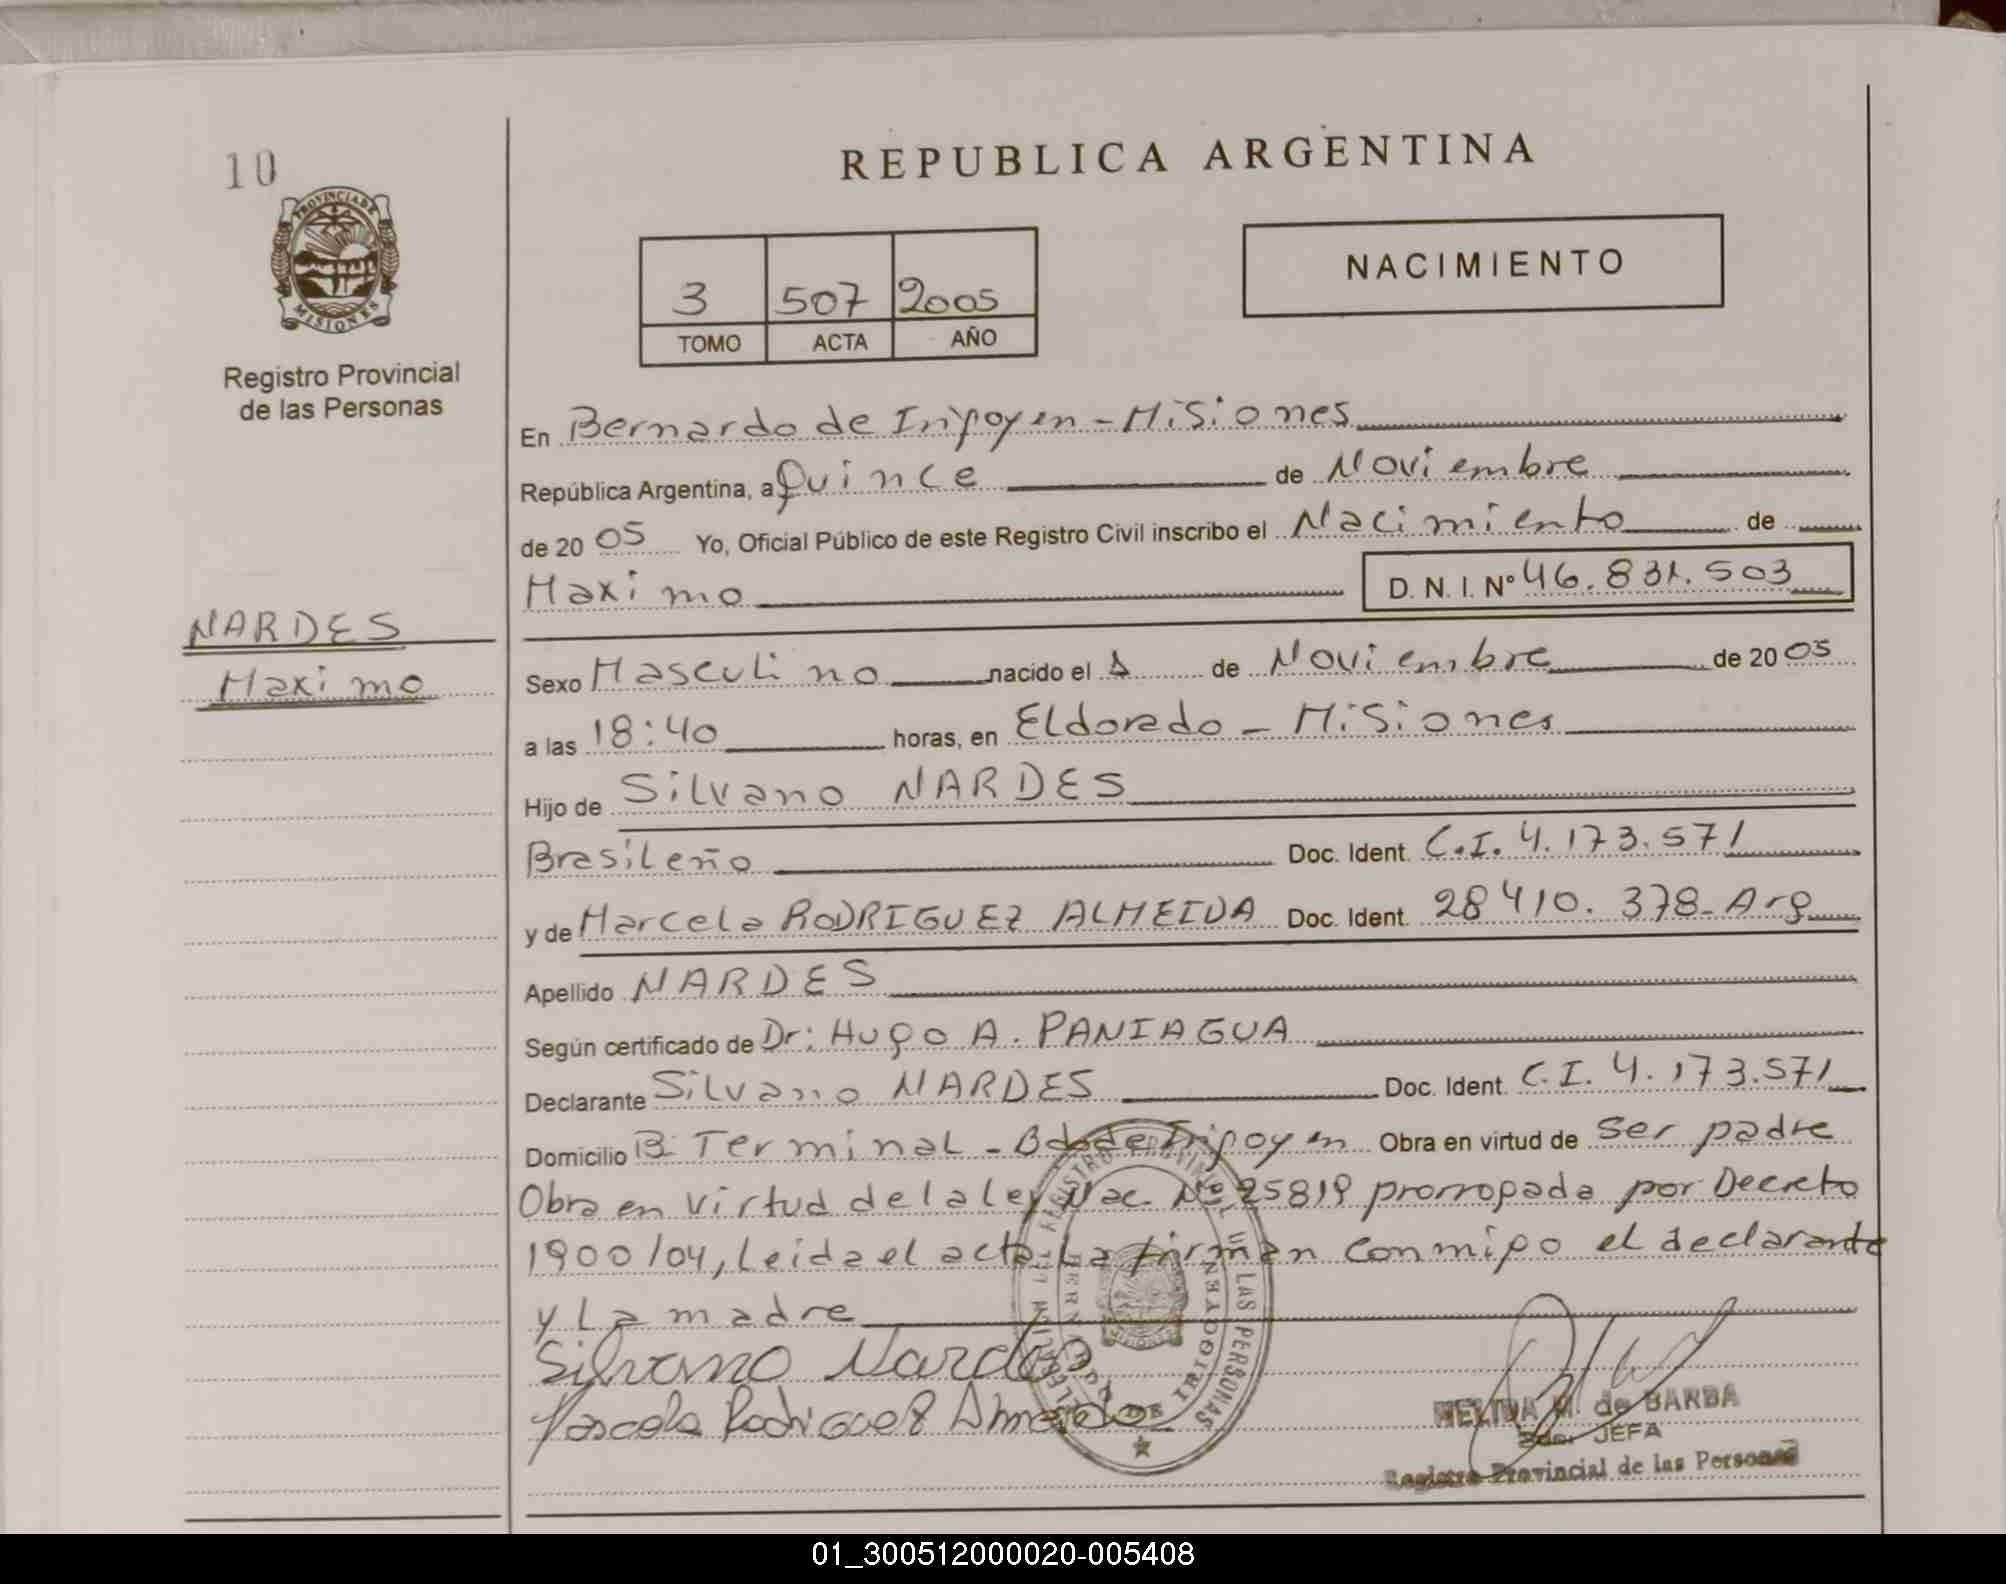 10
PROVINCIA DE
MISIONES
Registro Provincial
de las Personas
NARDES
Maximo
REPUBLICA ARGENTINA
3 507 2005
TOMO ACTA AÑO
NACIMIENTO
En Bernardo de Irigoyen - Misiones
República Argentina, a Quince de Noviembre
de 20 05 Yo, Oficial Público de este Registro Civil inscribo el Nacimiento de
Maximo D. N. I. Nº 46.831.503
Sexo Masculino nacido el 1 de Noviembre de 20 05
a las 18:40 horas, en Eldorado - Misiones
Hijo de Silvano NARDES
Brasileño Doc. Ident. C.I. 4.173.571
y de Marcela RODRIGUEZ ALMEIDA Doc. Ident. 28410.378 - Arg
Apellido NARDES
Según certificado de Dr: Hugo A. PANIAGUA
Declarante Silvano NARDES Doc. Ident. C.I. 4.173.571
Domicilio B: Terminal - Bdo de Irigoyen Obra en virtud de ser padre
Obra en virtud de la ley Nac. Nº 25819 prorrogada por Decreto
1900/04, Leida el acta La firman conmigo el declarante
y La madre
Silvano Nardes
Marcela Rodriguez Almeida
REGISTRO PROVINCIAL DE LAS PERSONAS
BERNARDO DE IRIGOYEN
M. de BARBA
2da. JEFA
Registro Provincial de las Personas
01_300512000020-005408